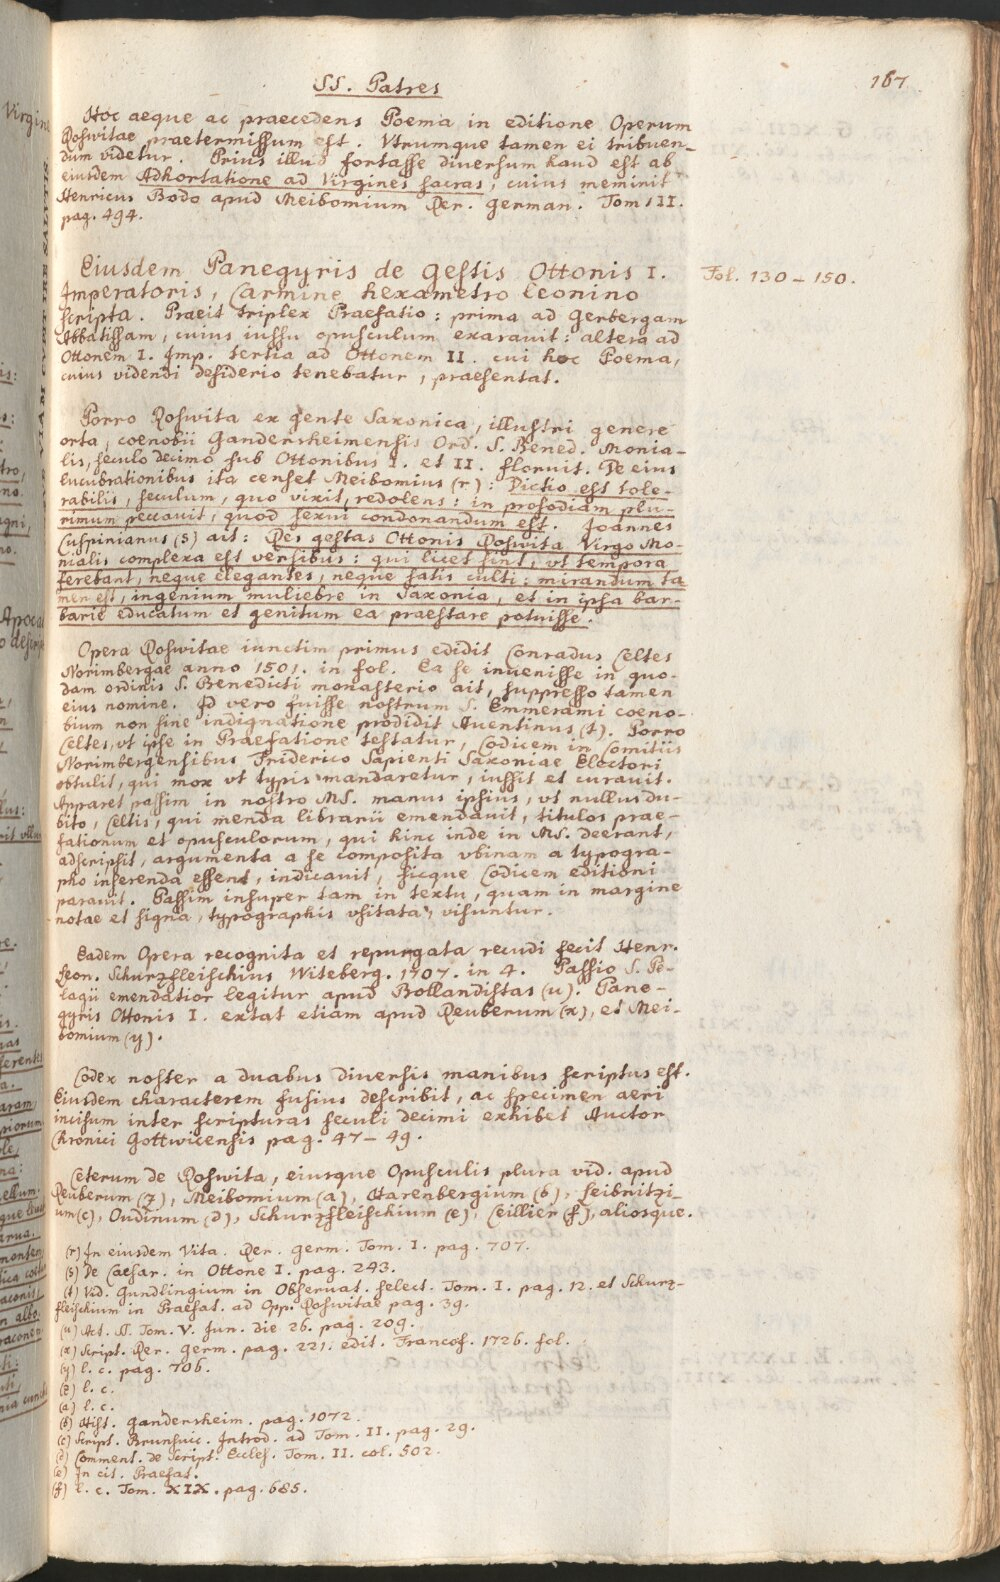 SS. Patres
167
Hoc aeque ac praecedens Poema in editione Operum
Roswitae praetermissum est. Vtrumque tamen ei tribuen-
dum videtur. Prius illud fortasse diversum haud est ab
eiusdem Adhortatione ad Virgines sacras, cuius meminit
Henricus Bodo apud Meibomium Rer. German. Tom. II.
pag. 494.
Eiusdem Panegyris de gestis Ottonis I.
Fol. 130 – 150.
Imperatoris, Carmine hexametro leonino
scripta. Praeit triplex Praefatio: prima ad Gerbergam
Abbatissam, cuius iussu opusculum exarauit: altera ad
Ottonem I. Imp. tertia ad Ottonem II. cui hoc Poema,
cuius videndi desiderio tenebatur, praesentat.
Porro Roswita ex gente Saxonica, illustri genere
orta, coenobii Gandersheimensis Ord. S. Bened. Monia-
lis, seculo decimo sub Ottonibus I. et II. floruit. De eius
lucubrationibus ita censet Meibomius (r): Dictio est tole-
rabilis, seculum, quo vixit, redolens: in prosodiam plu-
rimum peccauit, quod sexui condonandum est. Joannes
Cuspinianus (s) ait: Res gestas Ottonis Roswita Virgo Mo-
nialis complexa est versibus: qui licet sint, vt tempora
ferebant, neque elegantes, neque satis culti: mirandum ta
men est, ingenium muliebre in Saxonia, et in ipsa bar-
barie educatum et genitum ea praestare potuisse.
Opera Roswitae iunctim primus edidit Conradus Celtes
Norimbergae anno 1501. in fol. Ea se invenisse in quo-
dam ordinis S. Benedicti monasterio ait, suppresso tamen
eius nomine. Id vero fuisse nostrum S. Emmerami coeno-
bium non sine indignatione prodidit Auentinus (t). Porro
Celtes, vt ipse in Praefatione testatur, Codicem in Comitiis
Norimbergensibus Friderico Sapienti Saxoniae Electori
obtulit, qui mox vt typis mandaretur, iussit et curauit.
Apparet passim in nostro MS. manus ipsius, vt nullus du-
bito, Celtis, qui menda librarii emendauit, titulos prae-
fationum et opusculorum, qui hinc inde in MS. deerant,
adscripsit, argumenta a se composita vbinam a typogra-
pho inserenda essent, indicauit, sicque Codicem editioni
parauit. Passim insuper tam in textu, quam in margine
notae et signa, typographis vsitata, visuntur.
Eadem Opera recognita et repurgata recudi fecit Henr.
Leon. Schurzfleischius Witeberg. 1707. in 4. Passio S. Pe-
lagii emendatior legitur apud Bollandistas (u). Pane-
gyris Ottonis I. extat etiam apud Reuberum (x), et Mei-
bomium (y).
Codex noster a duabus diuersis manibus scriptus est.
Eiusdem characterem fusius describit, ac specimen aeri
incisum inter scripturas seculi decimi exhibet Auctor
Chronici Gottwicensis pag. 47 – 49.
Ceterum de Roswita, eiusque Opusculis plura vid. apud
Reuberum (z), Meibomium (a), Harenbergium (b), Leibnitzi-
um (c), Oudinum (d), Schurzfleischium (e), Ceillier (f), aliosque.
(r) In eiusdem Vita. Rer. Germ. Tom. I. pag. 707.
(s) De Caesar. in Ottone I. pag. 243.
(t) Vid. Gundlingium in Obseruat. select. Tom. I. pag. 12. et Schurz-
fleischium in Praefat. ad Opp. Roswitae pag. 39.
(u) Act. SS. Tom. V. Jun. die 26. pag. 209.
(x) Script. Rer. Germ. pag. 221. edit. Francof. 1726. fol.
(y) l. c. pag. 706.
(z) l. c.
(a) l. c.
(b) Hist. Gandersheim. pag. 1072.
(c) Script. Brunsuic. Introd. ad Tom. II. pag. 29.
(d) Comment. de Script. Eccles. Tom. II. col. 502.
(e) In cit. Praefat.
(f) l. c. Tom. XIX. pag. 685.